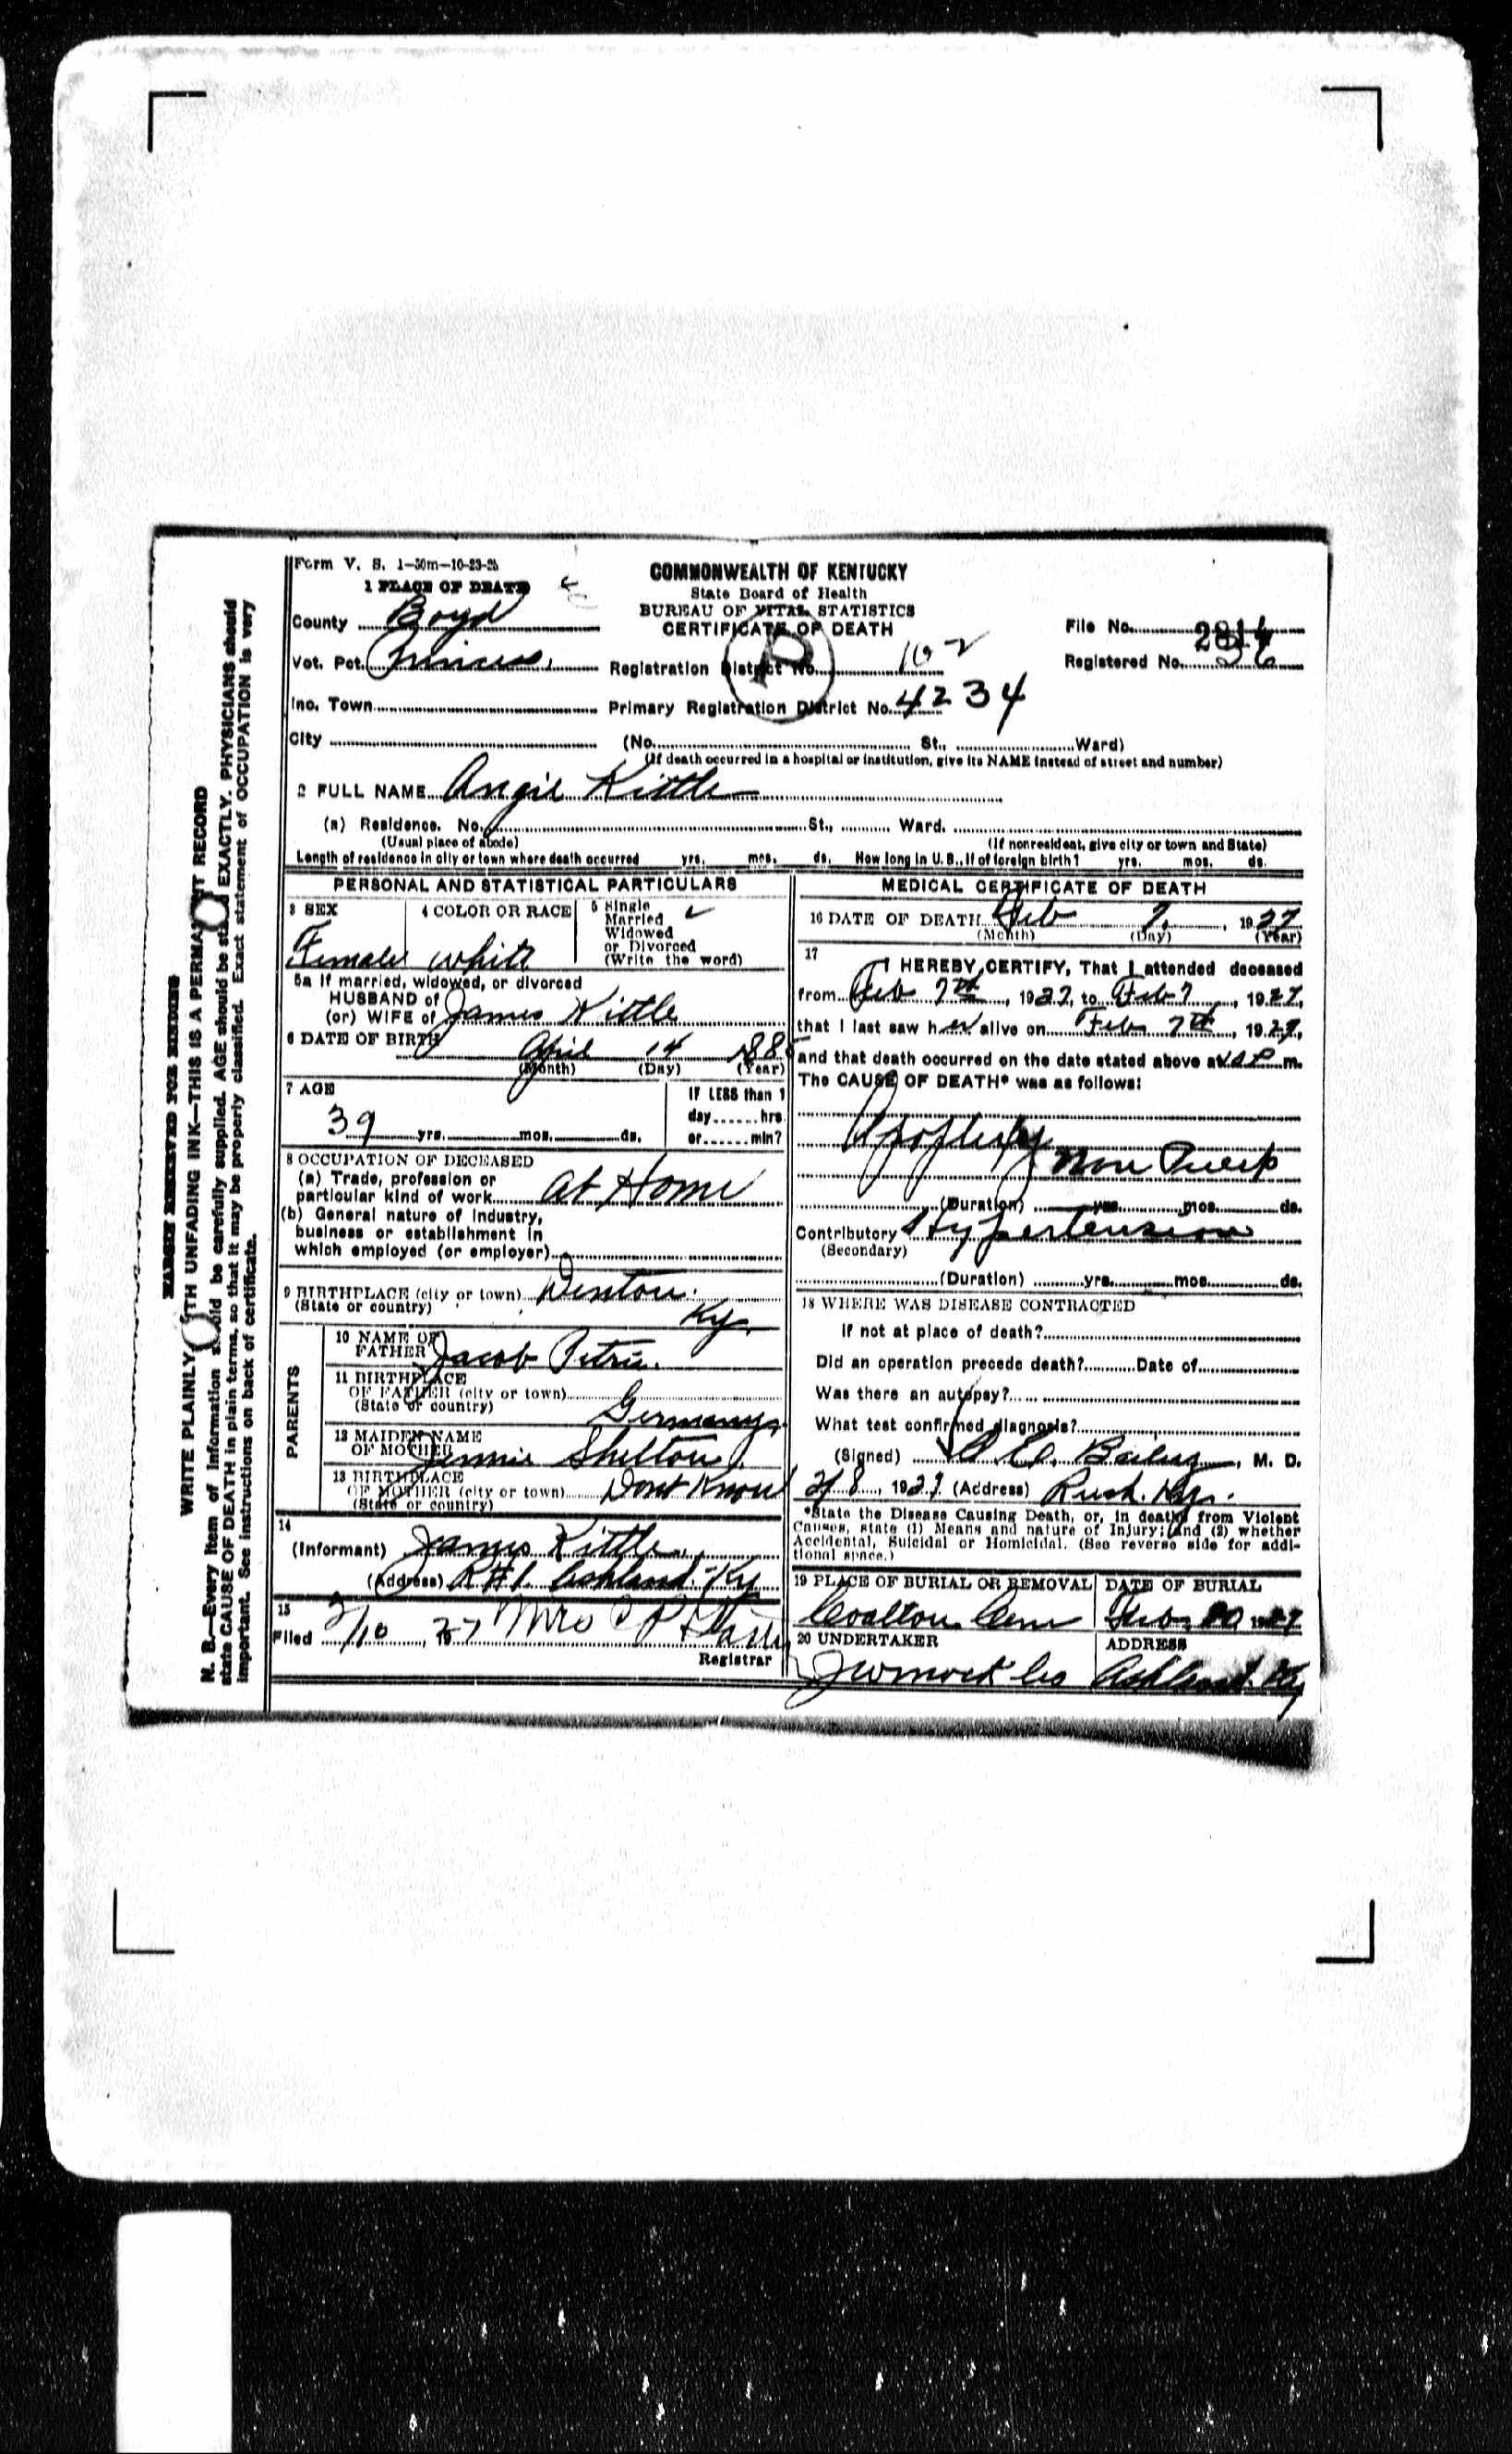 Form V. S. 1—50m—10-23-25
1 PLACE OF DEATH
County Boyd
Vot. Pct. Princess
Inc. Town
City
COMMONWEALTH OF KENTUCKY
State Board of Health
BUREAU OF VITAL STATISTICS
CERTIFICATE OF DEATH
Registration District No. 102
Primary Registration District No. 4234
File No.
Registered No. 36
(No. St., Ward)
(If death occurred in a hospital or institution, give its NAME instead of street and number)
2 FULL NAME Angie Kittle
(a) Residence. No. St., Ward.
(Usual place of abode) (If nonresident, give city or town and State)
Length of residence in city or town where death occurred yrs. mos. ds. How long in U. S., if of foreign birth? yrs. mos. ds.
PERSONAL AND STATISTICAL PARTICULARS
3 SEX
Female
4 COLOR OR RACE
white
5 Single
Married ✓
Widowed
or Divorced
(Write the word)
5a If married, widowed, or divorced
HUSBAND of
(or) WIFE of James Kittle
6 DATE OF BIRTH April 14 188
(Month) (Day) (Year)
7 AGE
39 yrs. mos. ds.
IF LESS than 1
day hrs.
or min?
8 OCCUPATION OF DECEASED
(a) Trade, profession or
particular kind of work At Home
(b) General nature of industry,
business or establishment in
which employed (or employer)
9 BIRTHPLACE (city or town) Denton
(State or country) Ky.
PARENTS
10 NAME OF
FATHER Jacob Petrie
11 BIRTHPLACE
OF FATHER (city or town)
(State or country) Germany
12 MAIDEN NAME
OF MOTHER Jennie Shelton
13 BIRTHPLACE
OF MOTHER (city or town) Dont Know
(State or country)
14
(Informant) James Kittle
(Address) R#1. Ashland Ky
15
Filed 2/10, 1927 Mrs C P
Registrar
MEDICAL CERTIFICATE OF DEATH
16 DATE OF DEATH Feb 7, 1927
(Month) (Day) (Year)
17
I HEREBY CERTIFY, That I attended deceased
from Feb 7th, 1927, to Feb 7, 1927,
that I last saw her alive on Feb 7th, 1927,
and that death occurred on the date stated above at P m.
The CAUSE OF DEATH* was as follows:
Apoplexy
Non Puerp
(Duration) yrs. mos. ds.
Contributory Hypertension
(Secondary)
(Duration) yrs. mos. ds.
18 WHERE WAS DISEASE CONTRACTED
If not at place of death?
Did an operation precede death? Date of
Was there an autopsy?
What test confirmed diagnosis?
(Signed) Bailey, M. D.
2/8, 1927 (Address) Rush. Ky.
*State the Disease Causing Death, or, in deaths from Violent
Causes, state (1) Means and nature of Injury; and (2) whether
Accidental, Suicidal or Homicidal. (See reverse side for addi-
tional space.)
19 PLACE OF BURIAL OR REMOVAL
Coalton Cem
DATE OF BURIAL
Feb. 10 1927
20 UNDERTAKER
J W Mock Co
ADDRESS
Ashland. Ky
MARGIN RESERVED FOR BINDING
WRITE PLAINLY WITH UNFADING INK—THIS IS A PERMANENT RECORD
N. B.—Every item of information should be carefully supplied. AGE should be stated EXACTLY. PHYSICIANS should
state CAUSE OF DEATH in plain terms, so that it may be properly classified. Exact statement of OCCUPATION is very
important. See instructions on back of certificate.